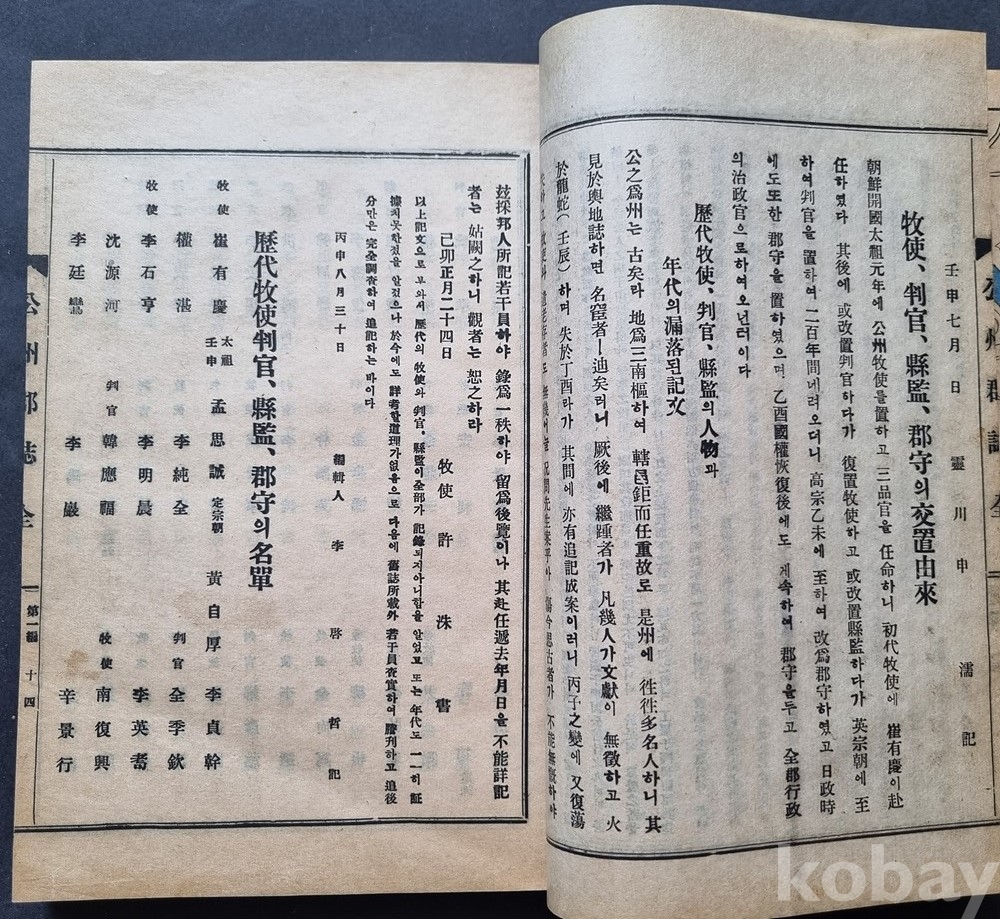 壬申七月 日 靈川申 濡 記
牧使、判官、縣監、郡守의交置由來
朝鮮開國太祖元年에 公州牧使를置하고 三品官을 任命하니 初代牧使에 崔有慶이赴
任하였다 其後에 或改置判官하다가 復置牧使하고 或改置縣監하다가 英宗朝에 至
하여判官을 置하여 二百年間네려오더니 高宗乙未에 至하여 改爲郡守하였고 日政時
에도또한 郡守을 置하였으며 乙酉國權恢復後에도 게속하여 郡守을두고 全郡行政
의治政官으로하여오넌러이다
歷代牧使、判官、縣監의人物과
年代의漏落된記文
公之爲州는 古矣라 地爲三南樞하여 轄邑鉅而任重故로 是州에 徃徃多名人하니 其
見於輿地誌하면 名宦者ㅣ迪矣러니 厥後에 繼踵者가 凡幾人가文獻이 無徵하고 火
於龍蛇(壬辰)하며 失於丁酉라가 其間에 亦有追記成案이러니 丙子之變에 又復蕩
不能無慨하야
玆採邦人所記若干員하야 錄爲一秩하야 留爲後覽이나 其赴任遞去年月日을不能詳記
者는 姑闕之하니 觀者는 恕之하라
己卯正月二十四日 牧使 許 洙 書
以上記文으로 부와서 歷代의 牧使와 判官、縣監이全部가 記錄되지아니함을 알었고 또는 年代도 一一히 証
據치못한졌을 알겄으나 於今에도 詳考할道理가없음으로 다음에 舊誌所載外 若干員查實하여 謄刊하고 追後
分만은 完全調査하여 追記하는 바이다
丙申八月三十日 編輯人 李 啓 哲 記
歷代牧使判官、縣監、郡守의名單
牧使 崔有慶 太祖壬申 孟思誠 定宗朝 黃自厚 李貞幹
權湛 李純全 判官 全季欽
牧使 李石亨 李明晨 李英耈
沈源河 判官 韓應福 牧使 南復興
李廷鸞 李巖 辛景行
公州郡誌 全 第一編 十四
公州郡誌 全
kobay